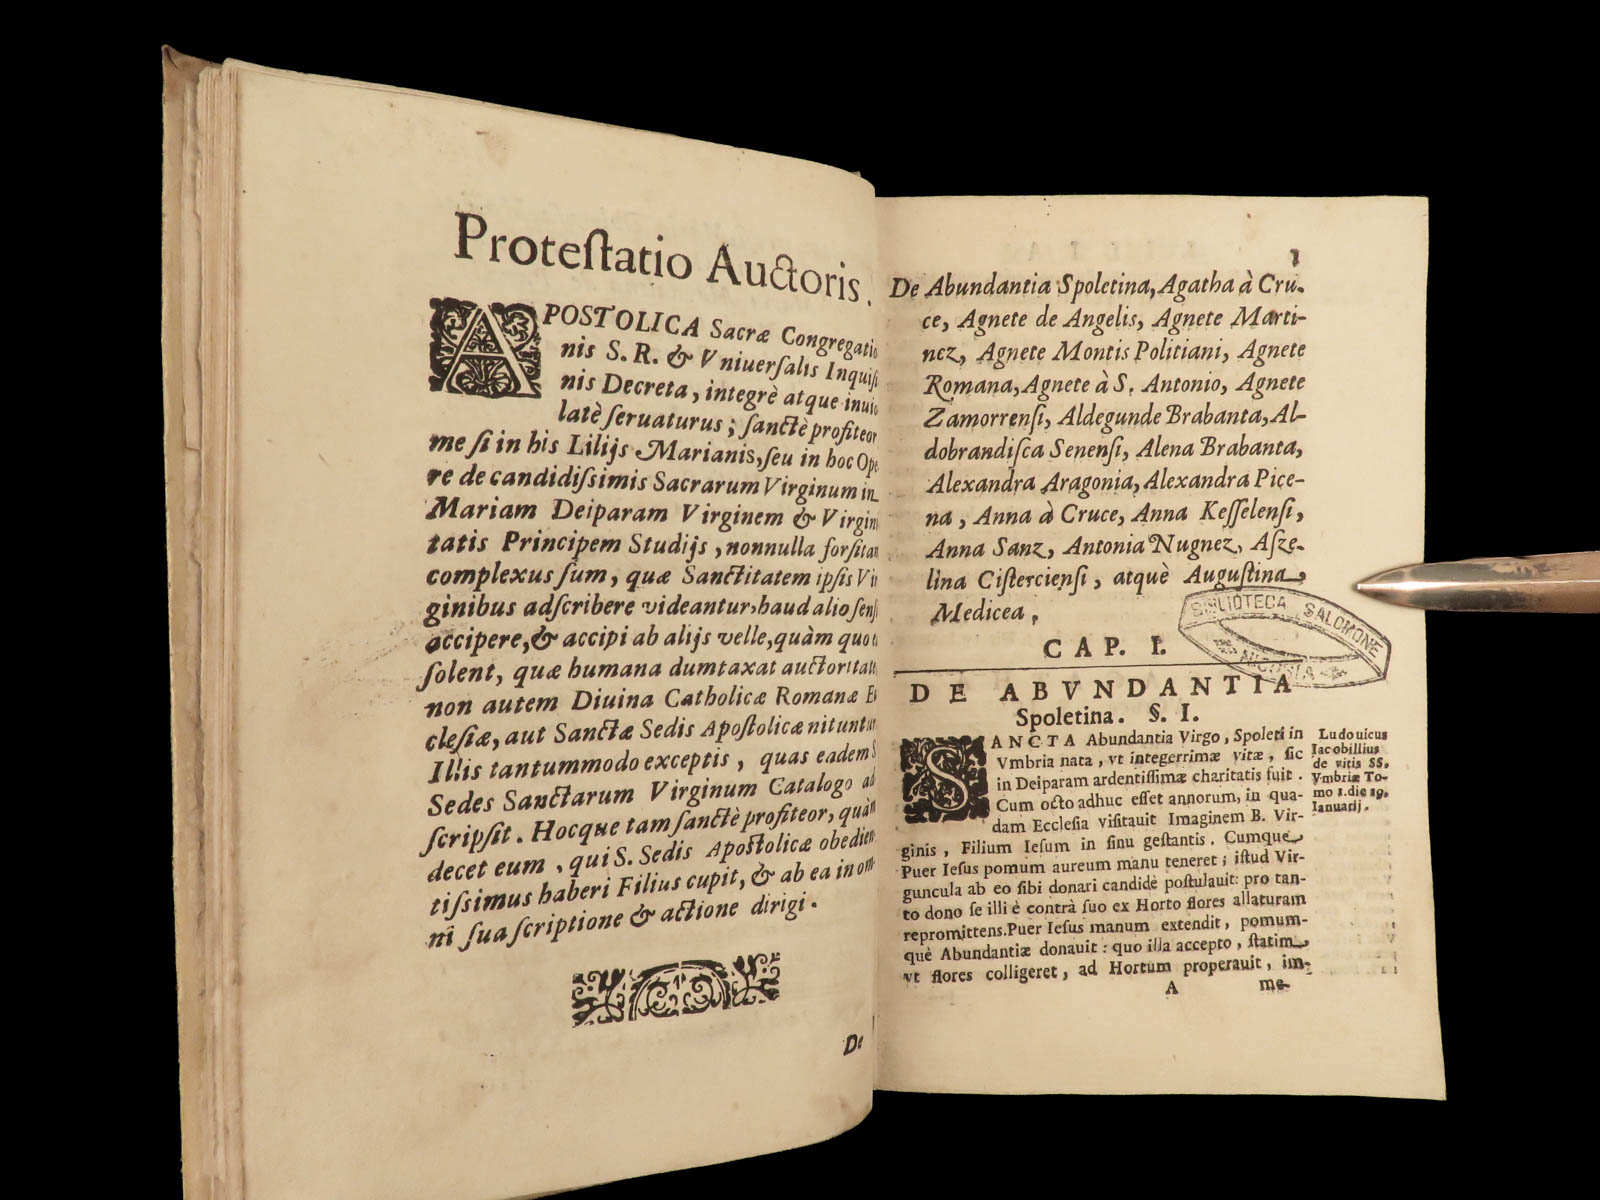 Protestatio Auctoris.
APOSTOLICA Sacræ Congregatio
nis S. R. & Vniuersalis Inquisi
nis Decreta, integrè atque inuio
latè seruaturus; sanctè profiteor
me si in his Lilijs Marianis, seu in hoc Ope
re de candidissimis Sacrarum Virginum in
Mariam Deiparam Virginem & Virgini
tatis Principem Studijs, nonnulla forsitan
complexus sum, quæ Sanctitatem ipsis Vir
ginibus adscribere videantur, haud alio sensu
accipere, & accipi ab alijs velle, quàm quo ea
solent, quæ humana dumtaxat auctoritate
non autem Diuina Catholicæ Romanæ Ec
clesiæ, aut Sanctæ Sedis Apostolicæ nituntur
Illis tantummodo exceptis, quas eadem S
Sedes Sanctarum Virginum Catalogo ad
scripsit. Hocque tam sanctè profiteor, quàm
decet eum, qui S. Sedis Apostolicæ obedien
tissimus haberi Filius cupit, & ab ea in om
ni sua scriptione & actione dirigi.
De
1
De Abundantia Spoletina, Agatha à Cru-
ce, Agnete de Angelis, Agnete Marti-
nez, Agnete Montis Politiani, Agnete
Romana, Agnete à S. Antonio, Agnete
Zamorrensi, Aldegunde Brabanta, Al-
dobrandisca Senensi, Alena Brabanta,
Alexandra Aragonia, Alexandra Pice-
na, Anna à Cruce, Anna Kesselensi,
Anna Sanz, Antonia Nugnez, Asze-
lina Cisterciensi, atquè Augustina
Medicea.
BIBLIOTECA SALOMONE
NICOSIA
CAP. I.
DE ABVNDANTIA
Spoletina. §. I.
SANCTA Abundantia Virgo, Spoleti in
Vmbria nata, vt integerrimæ vitæ, sic
in Deiparam ardentissimæ charitatis fuit.
Cum octo adhuc esset annorum, in qua-
dam Ecclesia visitauit Imaginem B. Vir-
ginis, Filium Iesum in sinu gestantis. Cumque
Puer Iesus pomum aureum manu teneret; istud Vir-
guncula ab eo sibi donari candidè postulauit: pro tan-
to dono se illi è contrà suo ex Horto flores allaturam
repromittens. Puer Iesus manum extendit, pomum-
què Abundantiæ donauit: quo illa accepto, statim
vt flores colligeret, ad Hortum properauit, im-
A me-
Ludouicus
Iacobillius
de vitis SS.
Vmbriæ To-
mo 1. die 19.
Ianuarij.